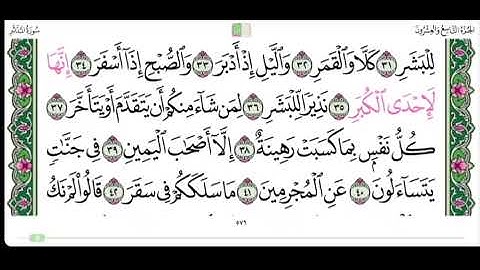 الجزء التاسع والعشرون
سورة المدثر
لِلْبَشَرِ ٣١ كَلَّا وَالْقَمَرِ ٣٢ وَاللَّيْلِ إِذْ أَدْبَرَ ٣٣ وَالصُّبْحِ إِذَا أَسْفَرَ ٣٤ إِنَّهَا
لَإِحْدَى الْكُبَرِ ٣٥ نَذِيرًا لِّلْبَشَرِ ٣٦ لِمَن شَاءَ مِنكُمْ أَن يَتَقَدَّمَ أَوْ يَتَأَخَّرَ ٣٧
كُلُّ نَفْسٍ بِمَا كَسَبَتْ رَهِينَةٌ ٣٨ إِلَّا أَصْحَٰبَ الْيَمِينِ ٣٩ فِي جَنَّٰتٍ
يَتَسَاءَلُونَ ٤٠ عَنِ الْمُجْرِمِينَ ٤١ مَا سَلَكَكُمْ فِي سَقَرَ ٤٢ قَالُوا لَمْ نَكُ
٥٧٦